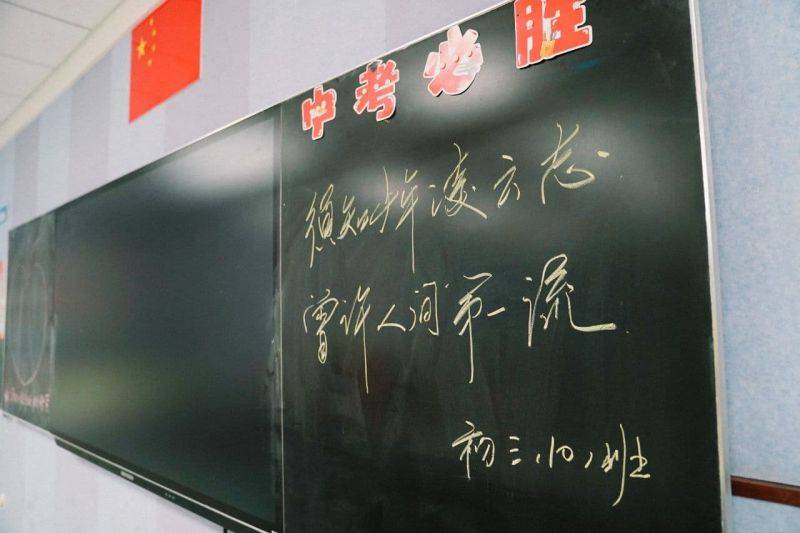 中考必胜
须知少年凌云志
曾许人间第一流
初三(10)班